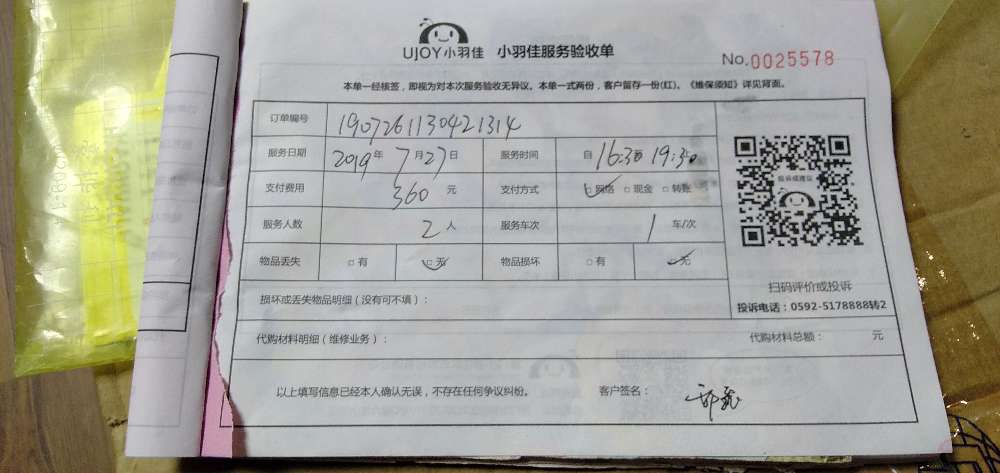 UJOY小羽佳 小羽佳服务验收单
No.0025578
本单一经核签，即视为对本次服务验收无异议。本单一式两份，客户留存一份(红)。《维保须知》详见背面。
订单编号 1907261130421314
服务日期 2019年 7月27日 服务时间 自 16:30至 19:30
支付费用 360 元 支付方式 □网络 □现金 □转账
服务人数 2人 服务车次 1 车/次
物品丢失 □有 □无 物品损坏 □有 □无
扫码评价或投诉
损坏或丢失物品明细（没有可不填）：
投诉电话：0592-5178888转2
代购材料明细（维修业务）： 代购材料总额： 元
以上填写信息已经本人确认无误，不存在任何争议纠纷。 客户签名：